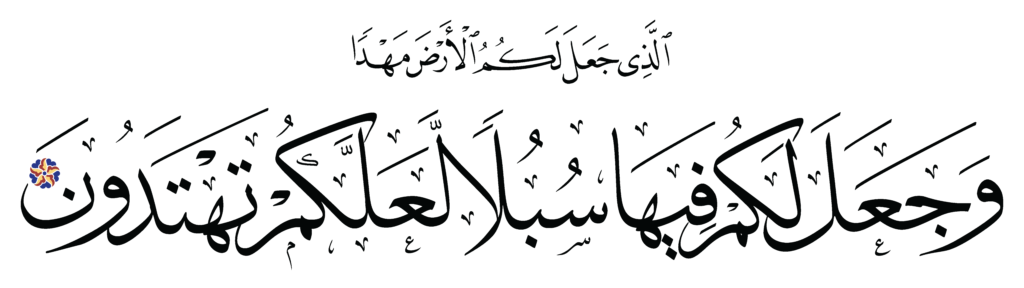 ٱلَّذِى جَعَلَ لَكُمُ ٱلْأَرْضَ مَهْدًا
وَجَعَلَ لَكُمْ فِيهَا سُبُلًا لَّعَلَّكُمْ تَهْتَدُونَ